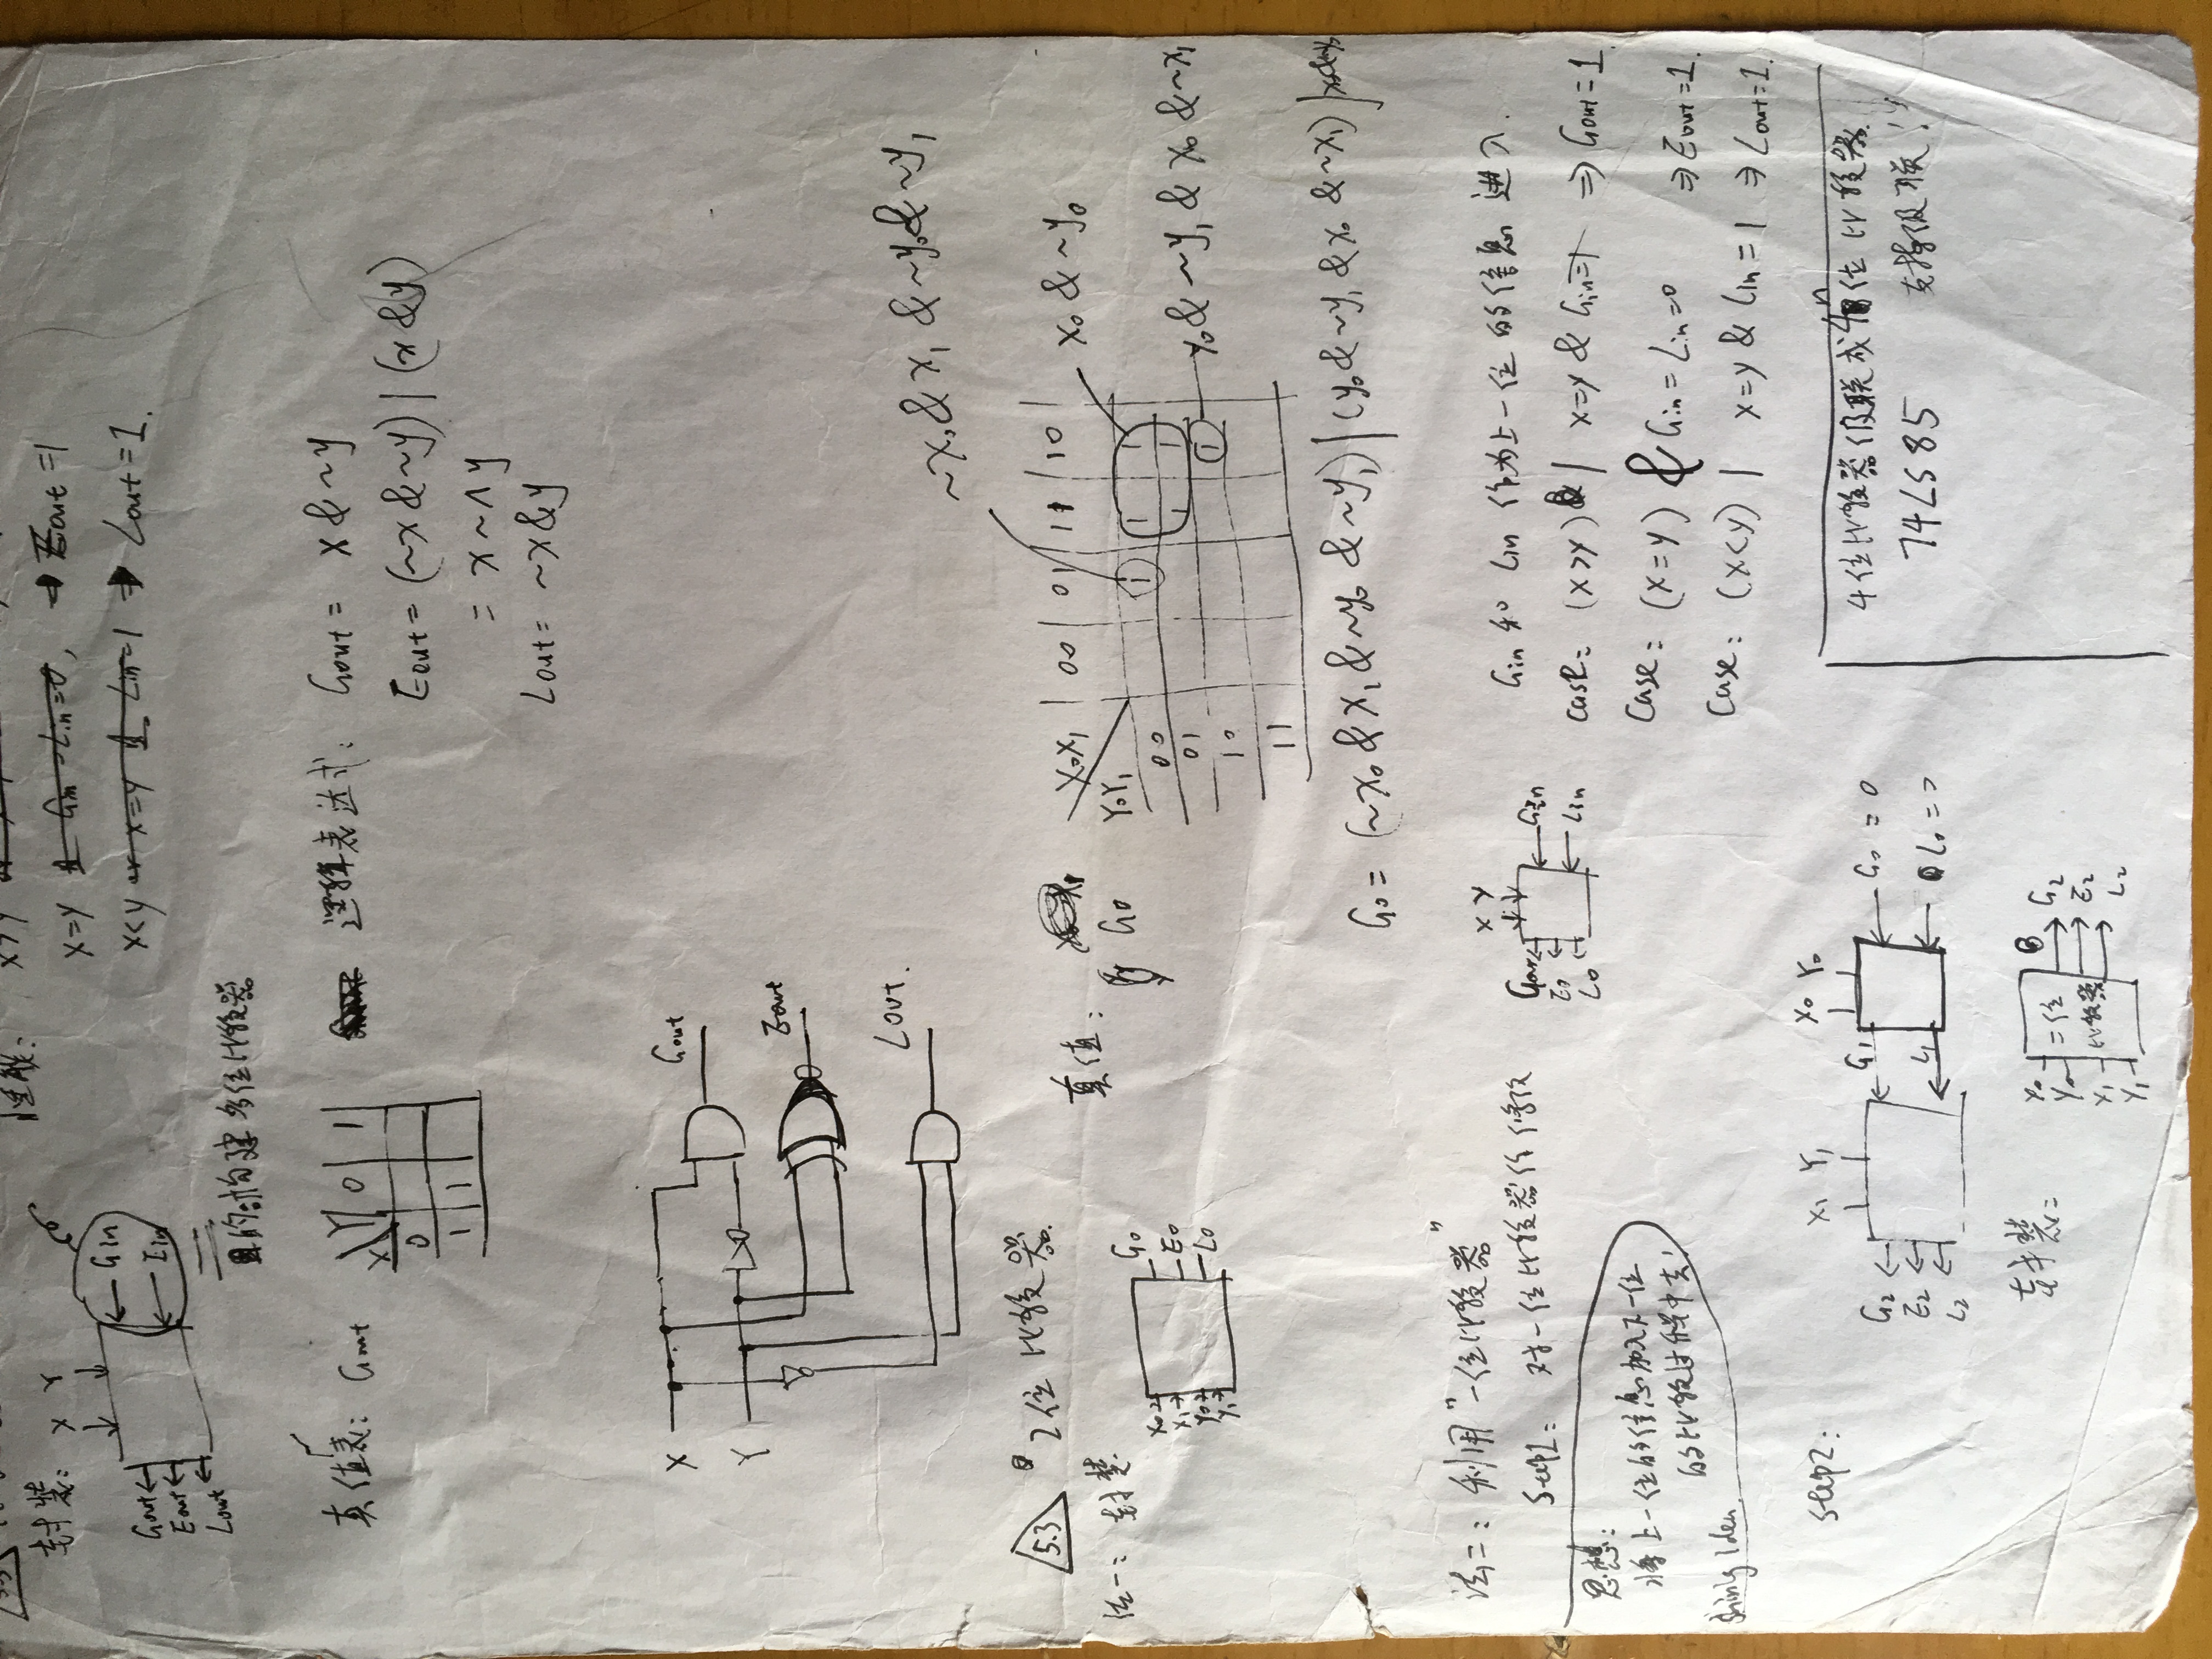 封装: X Y
Gin
Gout
Eout
Lout
目的:构建多位比较器
性能: X>Y
X=Y & Gin=Lin=0, ⇒ Eout=1
X<Y or X=Y & Lin=1 ⇒ Lout=1.
真值表: Gout
X Y 0 1
0
1 1
逻辑表达式: Gout = x & ~y
Eout = (~x & ~y) | (x & y)
= x ~^ y
Lout = ~x & y
X
Y
Gout
Eout
Lout.
5.3 2位比较器.
法一: 封装
X0
X1
Y0
Y1
G0
E0
L0
真值: G0
~x0 & x1 & ~y0 & ~y1
X0X1 00 01 11 10
Y0Y1
00 1 1 1
01 1 1
10 1
11
x0 & ~y0
y0 & ~y1 & x0 & ~x1
G0 = (~x0 & x1 & ~y0 & ~y1) | (y0 & ~y1 & x0 & ~x1) | x0&~y0
法二: 利用"一位比较器"
Step1: 对一位比较器作修改
X Y
Gout
E0
L0
Gin
Lin
Gin 和 Lin 作为上一位的信息 进入.
case: (x>y) | x=y & Gin=1 ⇒ Gout=1.
Case: (x=y) & Gin=Lin=0 ⇒ Eout=1.
Case: (x<y) | x=y & Lin=1 ⇒ Lout=1.
思想:
将上一位的信息加入下一位
的比较过程中去!
shinig idea.
Step2:
X1 Y1 X0 Y0
G2
E2
L2
G1
L1
G0 = 0
L0 =
4位比较器级联成4n位比较器.
74LS85 支持级联!
封装:
X0
Y0
X1
Y1
二位
比较器
G2
E2
L2